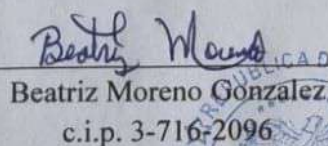 Beatriz Moreno
Beatriz Moreno Gonzalez
c.i.p. 3-716-2096